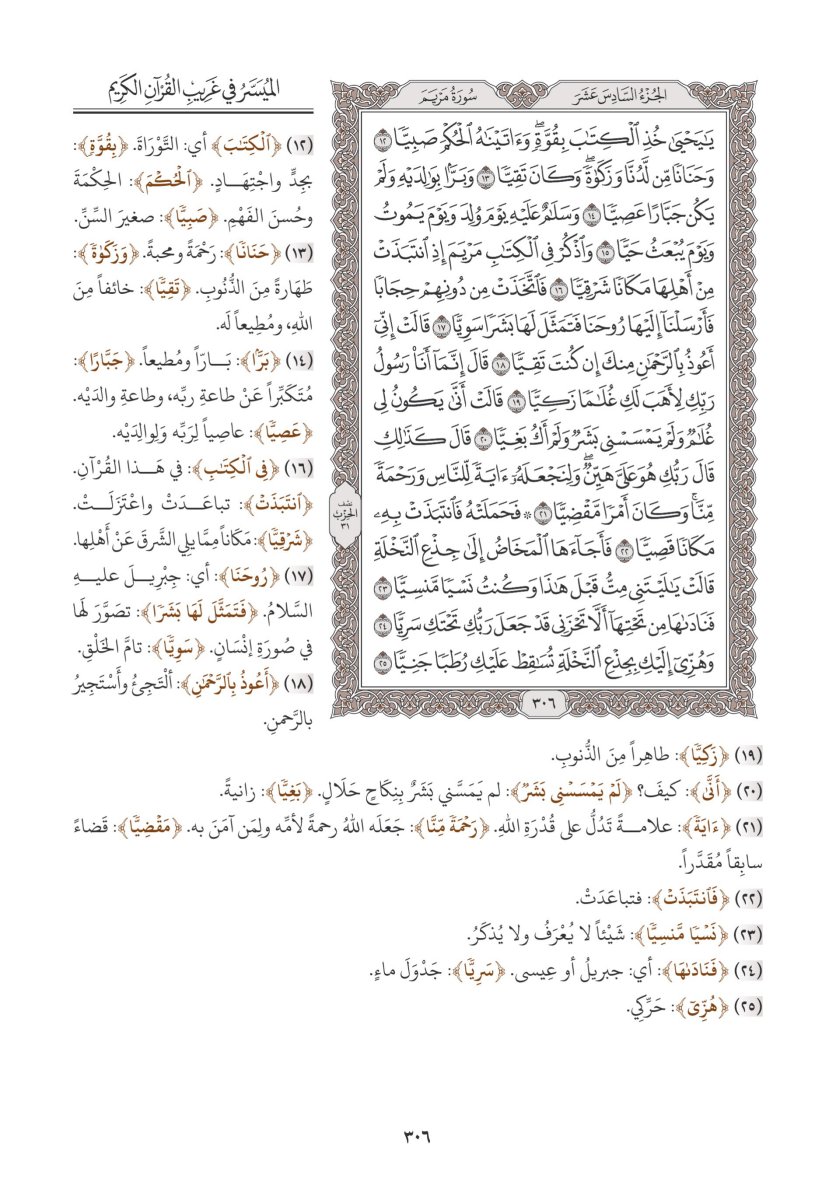 الميسر في غريب القرآن الكريم
الجزء السادس عشر
سورة مريم
يَٰيَحۡيَىٰ خُذِ ٱلۡكِتَٰبَ بِقُوَّةٖۖ وَءَاتَيۡنَٰهُ ٱلۡحُكۡمَ صَبِيّٗا ١٢
وَحَنَانٗا مِّن لَّدُنَّا وَزَكَوٰةٗۖ وَكَانَ تَقِيّٗا ١٣ وَبَرَّۢا بِوَٰلِدَيۡهِ وَلَمۡ
يَكُن جَبَّارًا عَصِيّٗا ١٤ وَسَلَٰمٌ عَلَيۡهِ يَوۡمَ وُلِدَ وَيَوۡمَ يَمُوتُ
وَيَوۡمَ يُبۡعَثُ حَيّٗا ١٥ وَٱذۡكُرۡ فِي ٱلۡكِتَٰبِ مَرۡيَمَ إِذِ ٱنتَبَذَتۡ
مِنۡ أَهۡلِهَا مَكَانٗا شَرۡقِيّٗا ١٦ فَٱتَّخَذَتۡ مِن دُونِهِمۡ حِجَابٗا
فَأَرۡسَلۡنَآ إِلَيۡهَا رُوحَنَا فَتَمَثَّلَ لَهَا بَشَرٗا سَوِيّٗا ١٧ قَالَتۡ إِنِّيٓ
أَعُوذُ بِٱلرَّحۡمَٰنِ مِنكَ إِن كُنتَ تَقِيّٗا ١٨ قَالَ إِنَّمَآ أَنَا۠ رَسُولُ
رَبِّكِ لِأَهَبَ لَكِ غُلَٰمٗا زَكِيّٗا ١٩ قَالَتۡ أَنَّىٰ يَكُونُ لِي
غُلَٰمٞ وَلَمۡ يَمۡسَسۡنِي بَشَرٞ وَلَمۡ أَكُ بَغِيّٗا ٢٠ قَالَ كَذَٰلِكِ
قَالَ رَبُّكِ هُوَ عَلَيَّ هَيِّنٞۖ وَلِنَجۡعَلَهُۥٓ ءَايَةٗ لِّلنَّاسِ وَرَحۡمَةٗ
مِّنَّاۚ وَكَانَ أَمۡرٗا مَّقۡضِيّٗا ٢١ ۞ فَحَمَلَتۡهُ فَٱنتَبَذَتۡ بِهِۦ
مَكَانٗا قَصِيّٗا ٢٢ فَأَجَآءَهَا ٱلۡمَخَاضُ إِلَىٰ جِذۡعِ ٱلنَّخۡلَةِ
قَالَتۡ يَٰلَيۡتَنِي مِتُّ قَبۡلَ هَٰذَا وَكُنتُ نَسۡيٗا مَّنسِيّٗا ٢٣
فَنَادَىٰهَا مِن تَحۡتِهَآ أَلَّا تَحۡزَنِي قَدۡ جَعَلَ رَبُّكِ تَحۡتَكِ سَرِيّٗا ٢٤
وَهُزِّيٓ إِلَيۡكِ بِجِذۡعِ ٱلنَّخۡلَةِ تُسَٰقِطۡ عَلَيۡكِ رُطَبٗا جَنِيّٗا ٢٥
نصف
الحزب
٣١
٣٠٦
(١٢) ﴿ٱلۡكِتَٰبَ﴾ أي: التَّوْرَاةَ. ﴿بِقُوَّةٖ﴾:
بجِدٍّ واجْتِهَـادٍ. ﴿ٱلۡحُكۡمَ﴾: الحِكْمَةَ
وحُسنَ الفَهْمِ. ﴿صَبِيّٗا﴾: صغيرَ السِّنِّ.
(١٣) ﴿حَنَانٗا﴾: رَحْمَةً ومحبةً. ﴿وَزَكَوٰةٗ﴾:
طَهَارةً مِنَ الذُّنُوبِ. ﴿تَقِيّٗا﴾: خائفاً مِنَ
اللهِ، ومُطِيعاً لَه.
(١٤) ﴿بَرَّۢا﴾: بَـارّاً ومُطيعاً. ﴿جَبَّارًا﴾:
مُتَكَبِّراً عَنْ طاعةِ ربِّه، وطاعةِ والدَيْه.
﴿عَصِيّٗا﴾: عاصِياً لِرَبِّه وَلِوالِدَيْه.
(١٦) ﴿فِي ٱلۡكِتَٰبِ﴾: في هَـذا القُرْآنِ.
﴿ٱنتَبَذَتۡ﴾: تباعَـدَتْ واعْتَزَلَـتْ.
﴿شَرۡقِيّٗا﴾: مَكَاناً مِمَّا يلي الشَّرقَ عَنْ أَهْلِها.
(١٧) ﴿رُوحَنَا﴾: أي: جِبْرِيلَ عليـهِ
السَّلامُ. ﴿فَتَمَثَّلَ لَهَا بَشَرٗا﴾: تصَوَّرَ لَها
في صُورَةِ إنْسَانٍ. ﴿سَوِيّٗا﴾: تامَّ الخَلْقِ.
(١٨) ﴿أَعُوذُ بِٱلرَّحۡمَٰنِ﴾: ألْتَجِئُ وأَسْتَجِيرُ
بالرَّحمنِ.
(١٩) ﴿زَكِيّٗا﴾: طاهِراً مِنَ الذُّنوبِ.
(٢٠) ﴿أَنَّىٰ﴾: كيفَ؟ ﴿لَمۡ يَمۡسَسۡنِي بَشَرٞ﴾: لم يَمَسَّني بَشَرٌ بِنِكَاحٍ حَلَالٍ. ﴿بَغِيّٗا﴾: زانيةً.
(٢١) ﴿ءَايَةٗ﴾: علامـةً تَدُلُّ على قُدْرَةِ اللهِ. ﴿رَحۡمَةٗ مِّنَّا﴾: جَعَلَه اللهُ رحمةً لأُمِّه ولِمَن آمَنَ به. ﴿مَقۡضِيّٗا﴾: قَضاءً
سابِقاً مُقَدَّراً.
(٢٢) ﴿فَٱنتَبَذَتۡ﴾: فتباعَدَتْ.
(٢٣) ﴿نَسۡيٗا مَّنسِيّٗا﴾: شَيْئاً لا يُعْرَفُ ولا يُذكَرُ.
(٢٤) ﴿فَنَادَىٰهَا﴾: أي: جبريلُ أو عِيسى. ﴿سَرِيّٗا﴾: جَدْوَلَ ماءٍ.
(٢٥) ﴿هُزِّيٓ﴾: حَرِّكِي.
٣٠٦